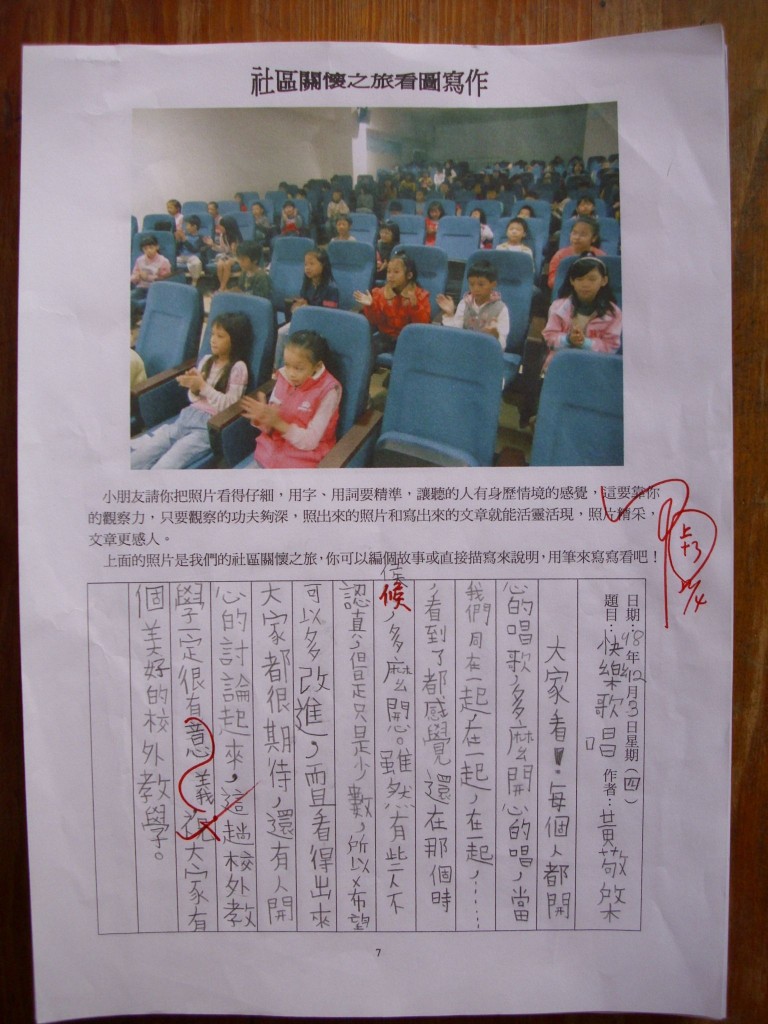 社區關懷之旅看圖寫作
小朋友請你把照片看得仔細，用字、用詞要精準，讓聽的人有身歷情境的感覺，這要靠你
的觀察力，只要觀察的功夫夠深，照出來的照片和寫出來的文章就能活靈活現，照片精采，
文章更感人。
上面的照片是我們的社區關懷之旅，你可以編個故事或直接描寫來說明，用筆來寫寫看吧！
日期：98年12月3日星期（四）
題目：快樂歌唱 作者：黃敬棨
大家看！每個人都開
心的唱歌，多麼開心的唱，當
我們同在一起，在一起，在一起，……
，看到了都感覺還在那個時
候，多麼開心。雖然有些人不
認真，但是只是少數，所以希望
可以多改進，而且看得出來
大家都很期待，還有人開
心的討論起來，這趟校外教
學一定很有意義，祝大家有
個美好的校外教學。
7